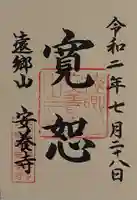 令和二年七月二十八日
寬恕
遠郷山
安養寺